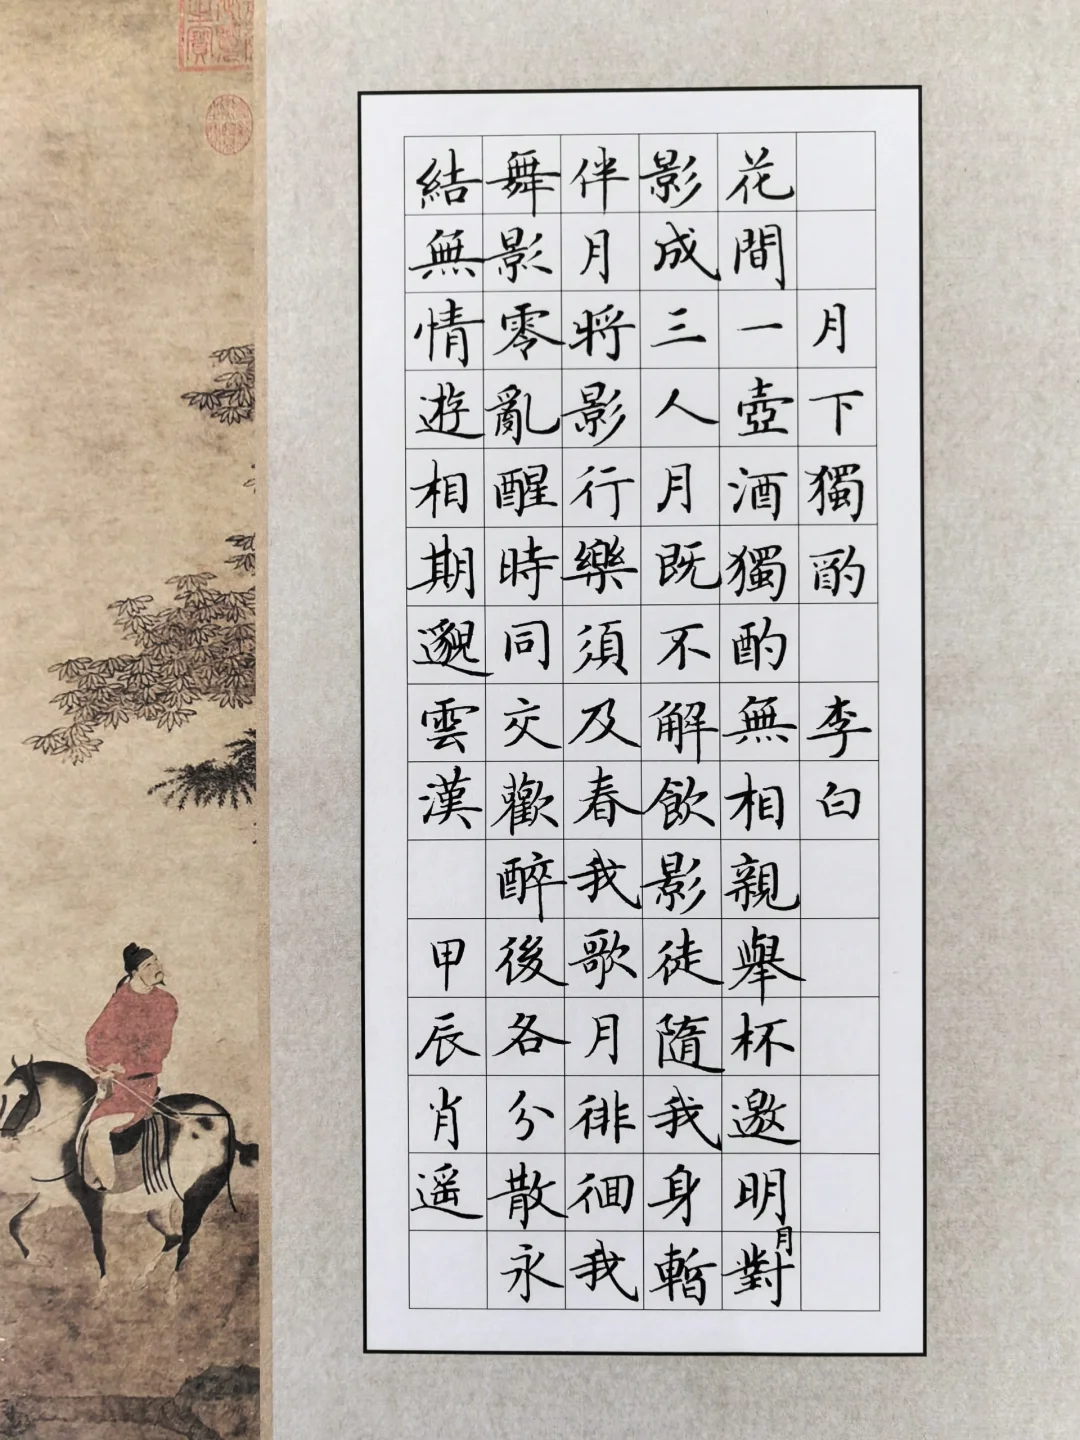 月下獨酌 李白
花間一壺酒獨酌無相親舉杯邀明月對
影成三人月既不解飲影徒隨我身暫
伴月將影行樂須及春我歌月徘徊我
舞影零亂醒時同交歡醉後各分散永
結無情遊相期邈雲漢 甲辰肖遥